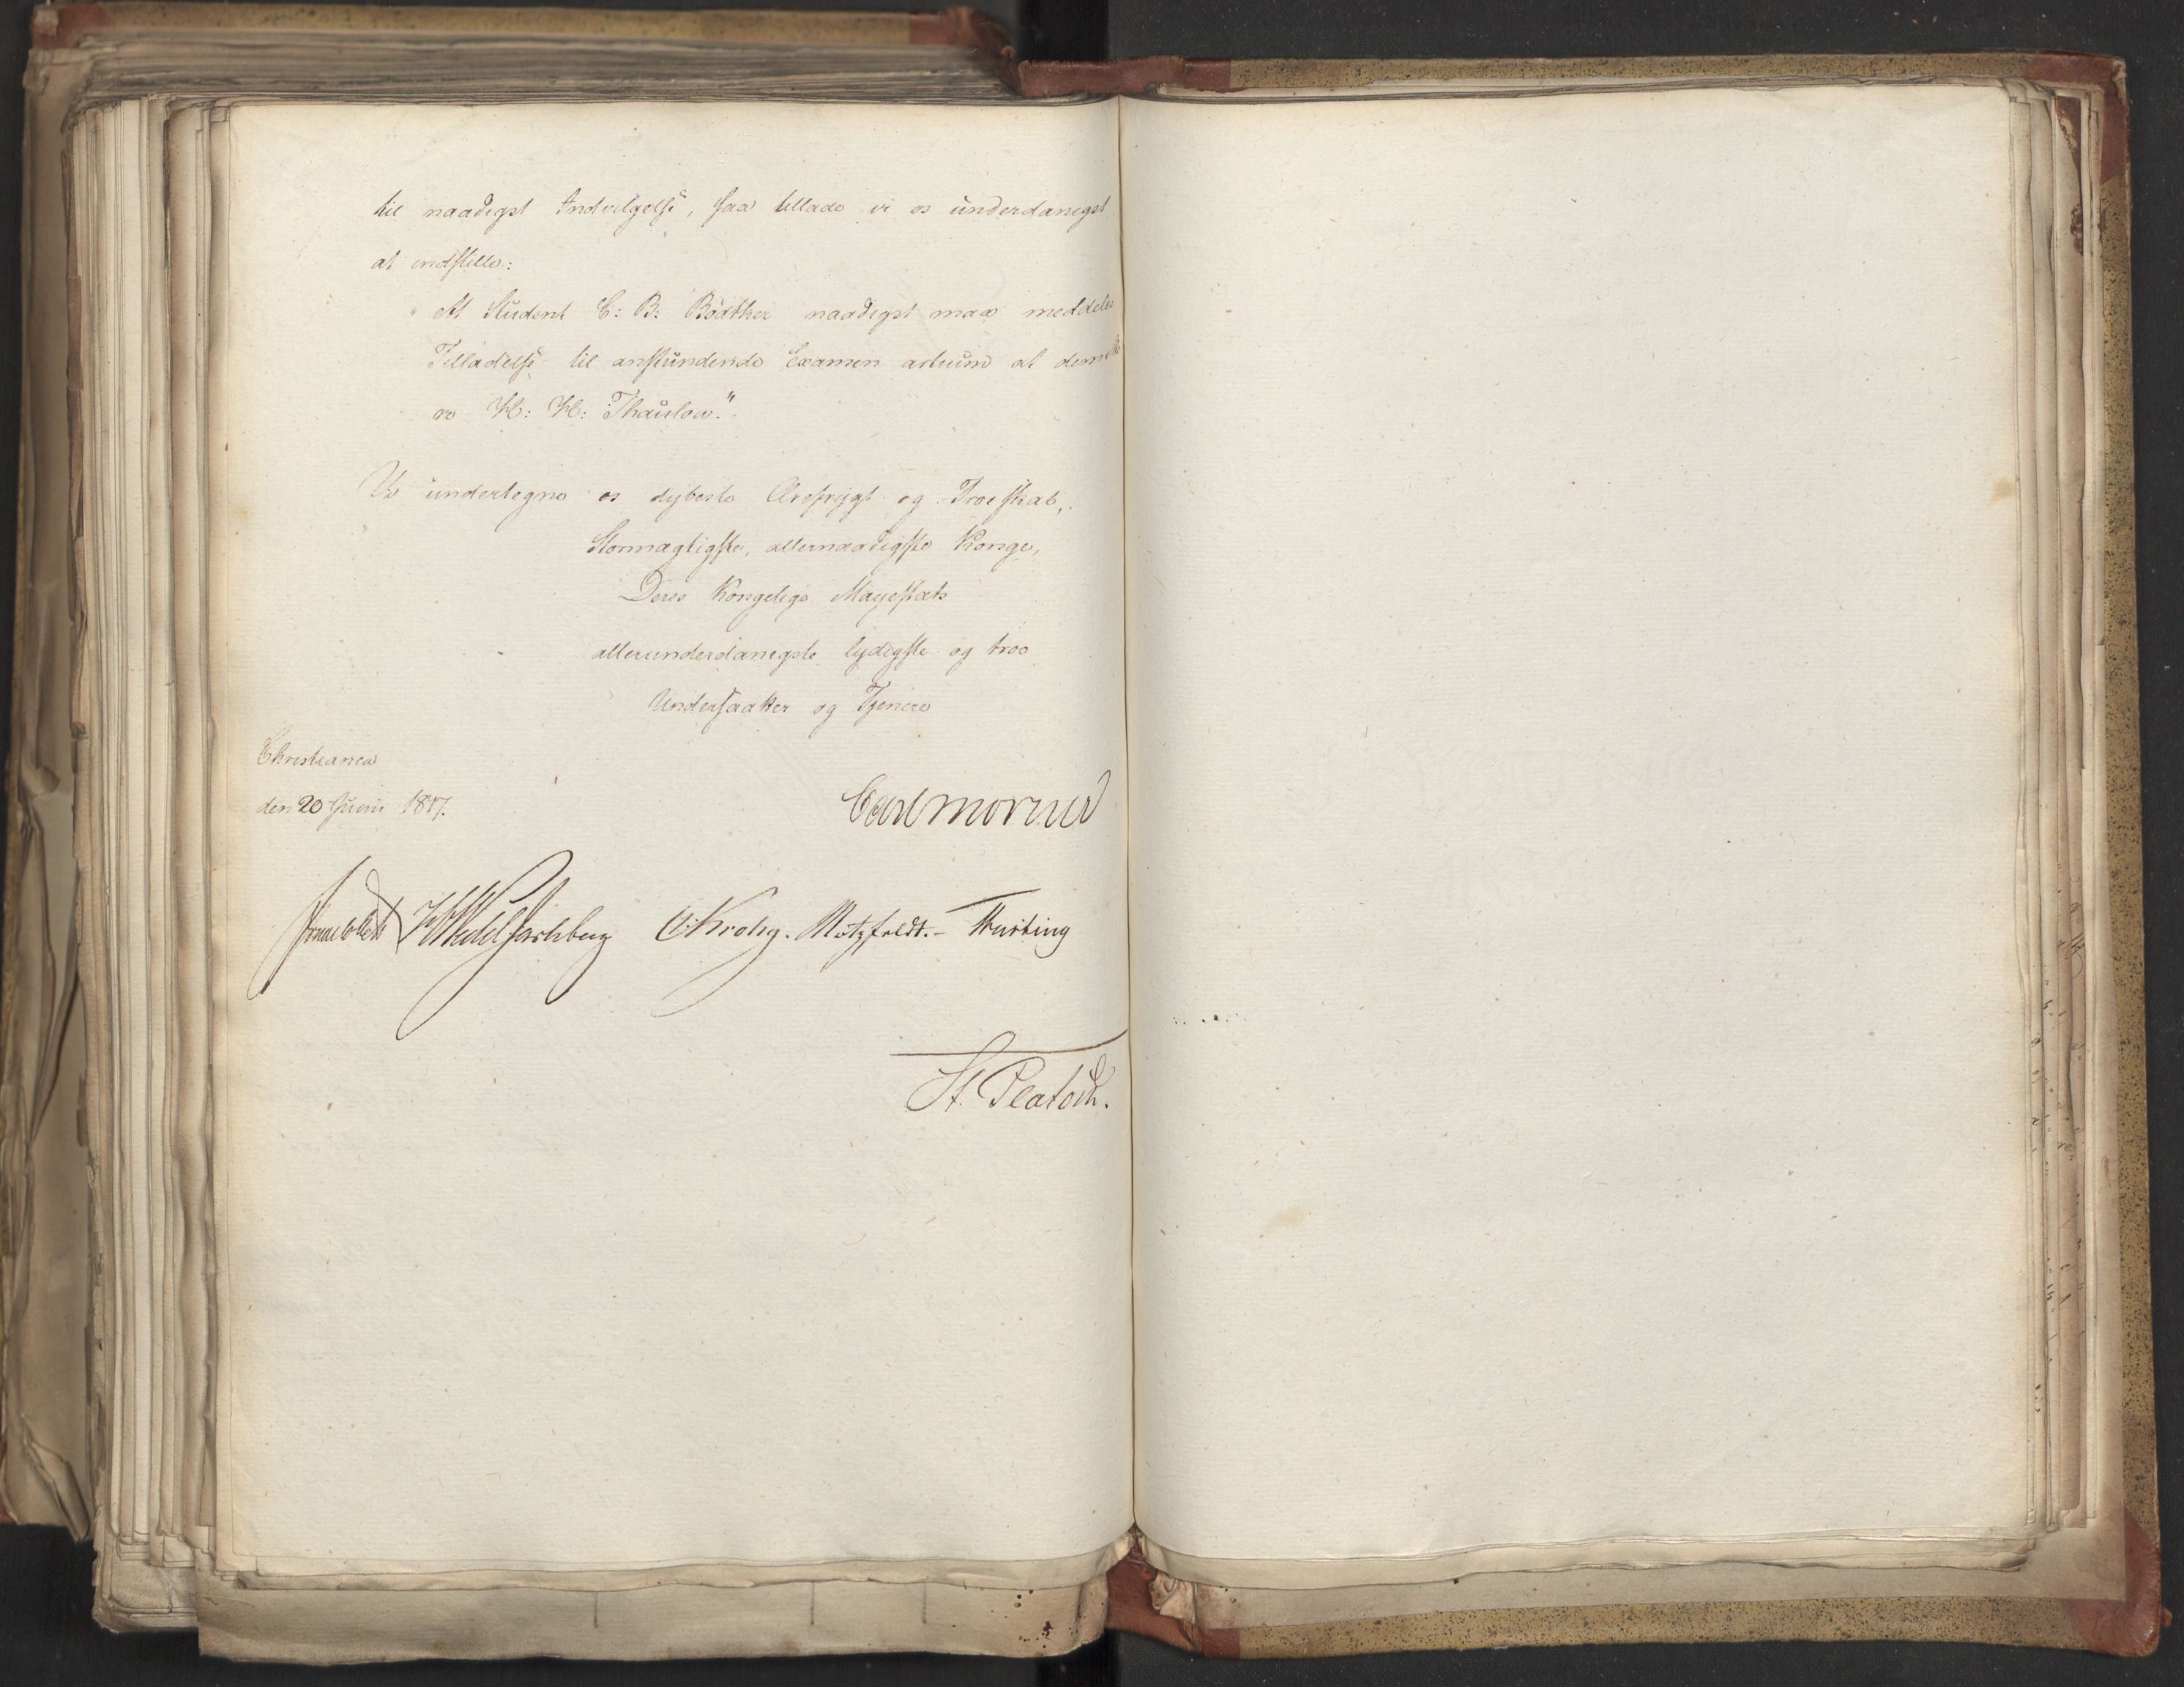 til naadigst Indvilgelse, saa tillade vi os underdanigst
at indstille:
"At Student C: B: Bödtker naadigst maa meddeles
Tilladelse til anstundende Examen artium at demitte
re H: H: Thaulow."
Vi undertegne os dybeste Ærefrygt og Troeskab,
Stormægtigste, allernaadigste Konge,
Deres Kongelige Majestæts
allerunderdanigste lydigste og troe
Undersaatter og Tjenere
Christiania
den 20 Juni 1817.
Carl Mörner
Sommerfeldt HWedel Jarlsberg CKrohg. Motzfeldt.- Thesting
St. Platouh.